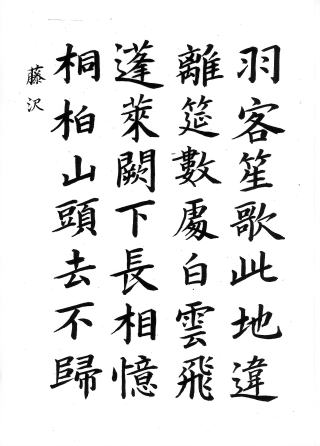 羽客笙歌此地違
離筵數處白雲飛
蓬萊闕下長相憶
桐柏山頭去不歸
藤沢